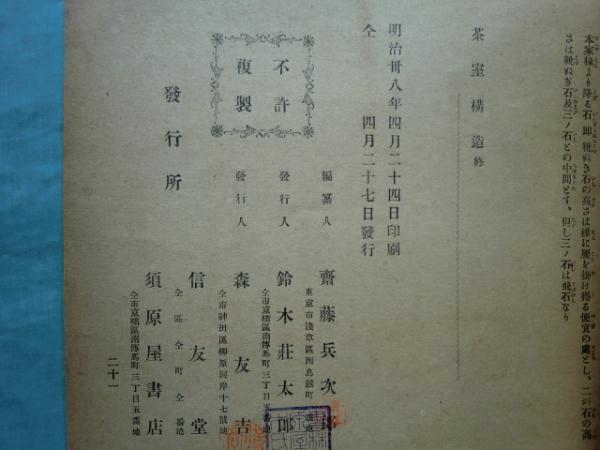 本家椽より降る石、即靴ぬき石の高さは椽に腰を掛け得る便宜の處とし、二の石の高
さは靴ぬぎ石及三ノ石との中間とす、但し三ノ石は飛石なり
茶室構造終
明治卅八年四月二十四日印刷
仝 四月二十七日發行
不許
複製
編纂人 齋藤兵次郎
東京市淺草區西鳥越町
發行人 鈴木莊太郎
仝市京橋區南傳馬町三丁目五番地
發行人 森友吉
仝市神田區柳原河岸十七號地
發行所
信友堂
仝區仝町仝番地
須原屋書店
仝市京橋區南傳馬町三丁目五番地
二十一